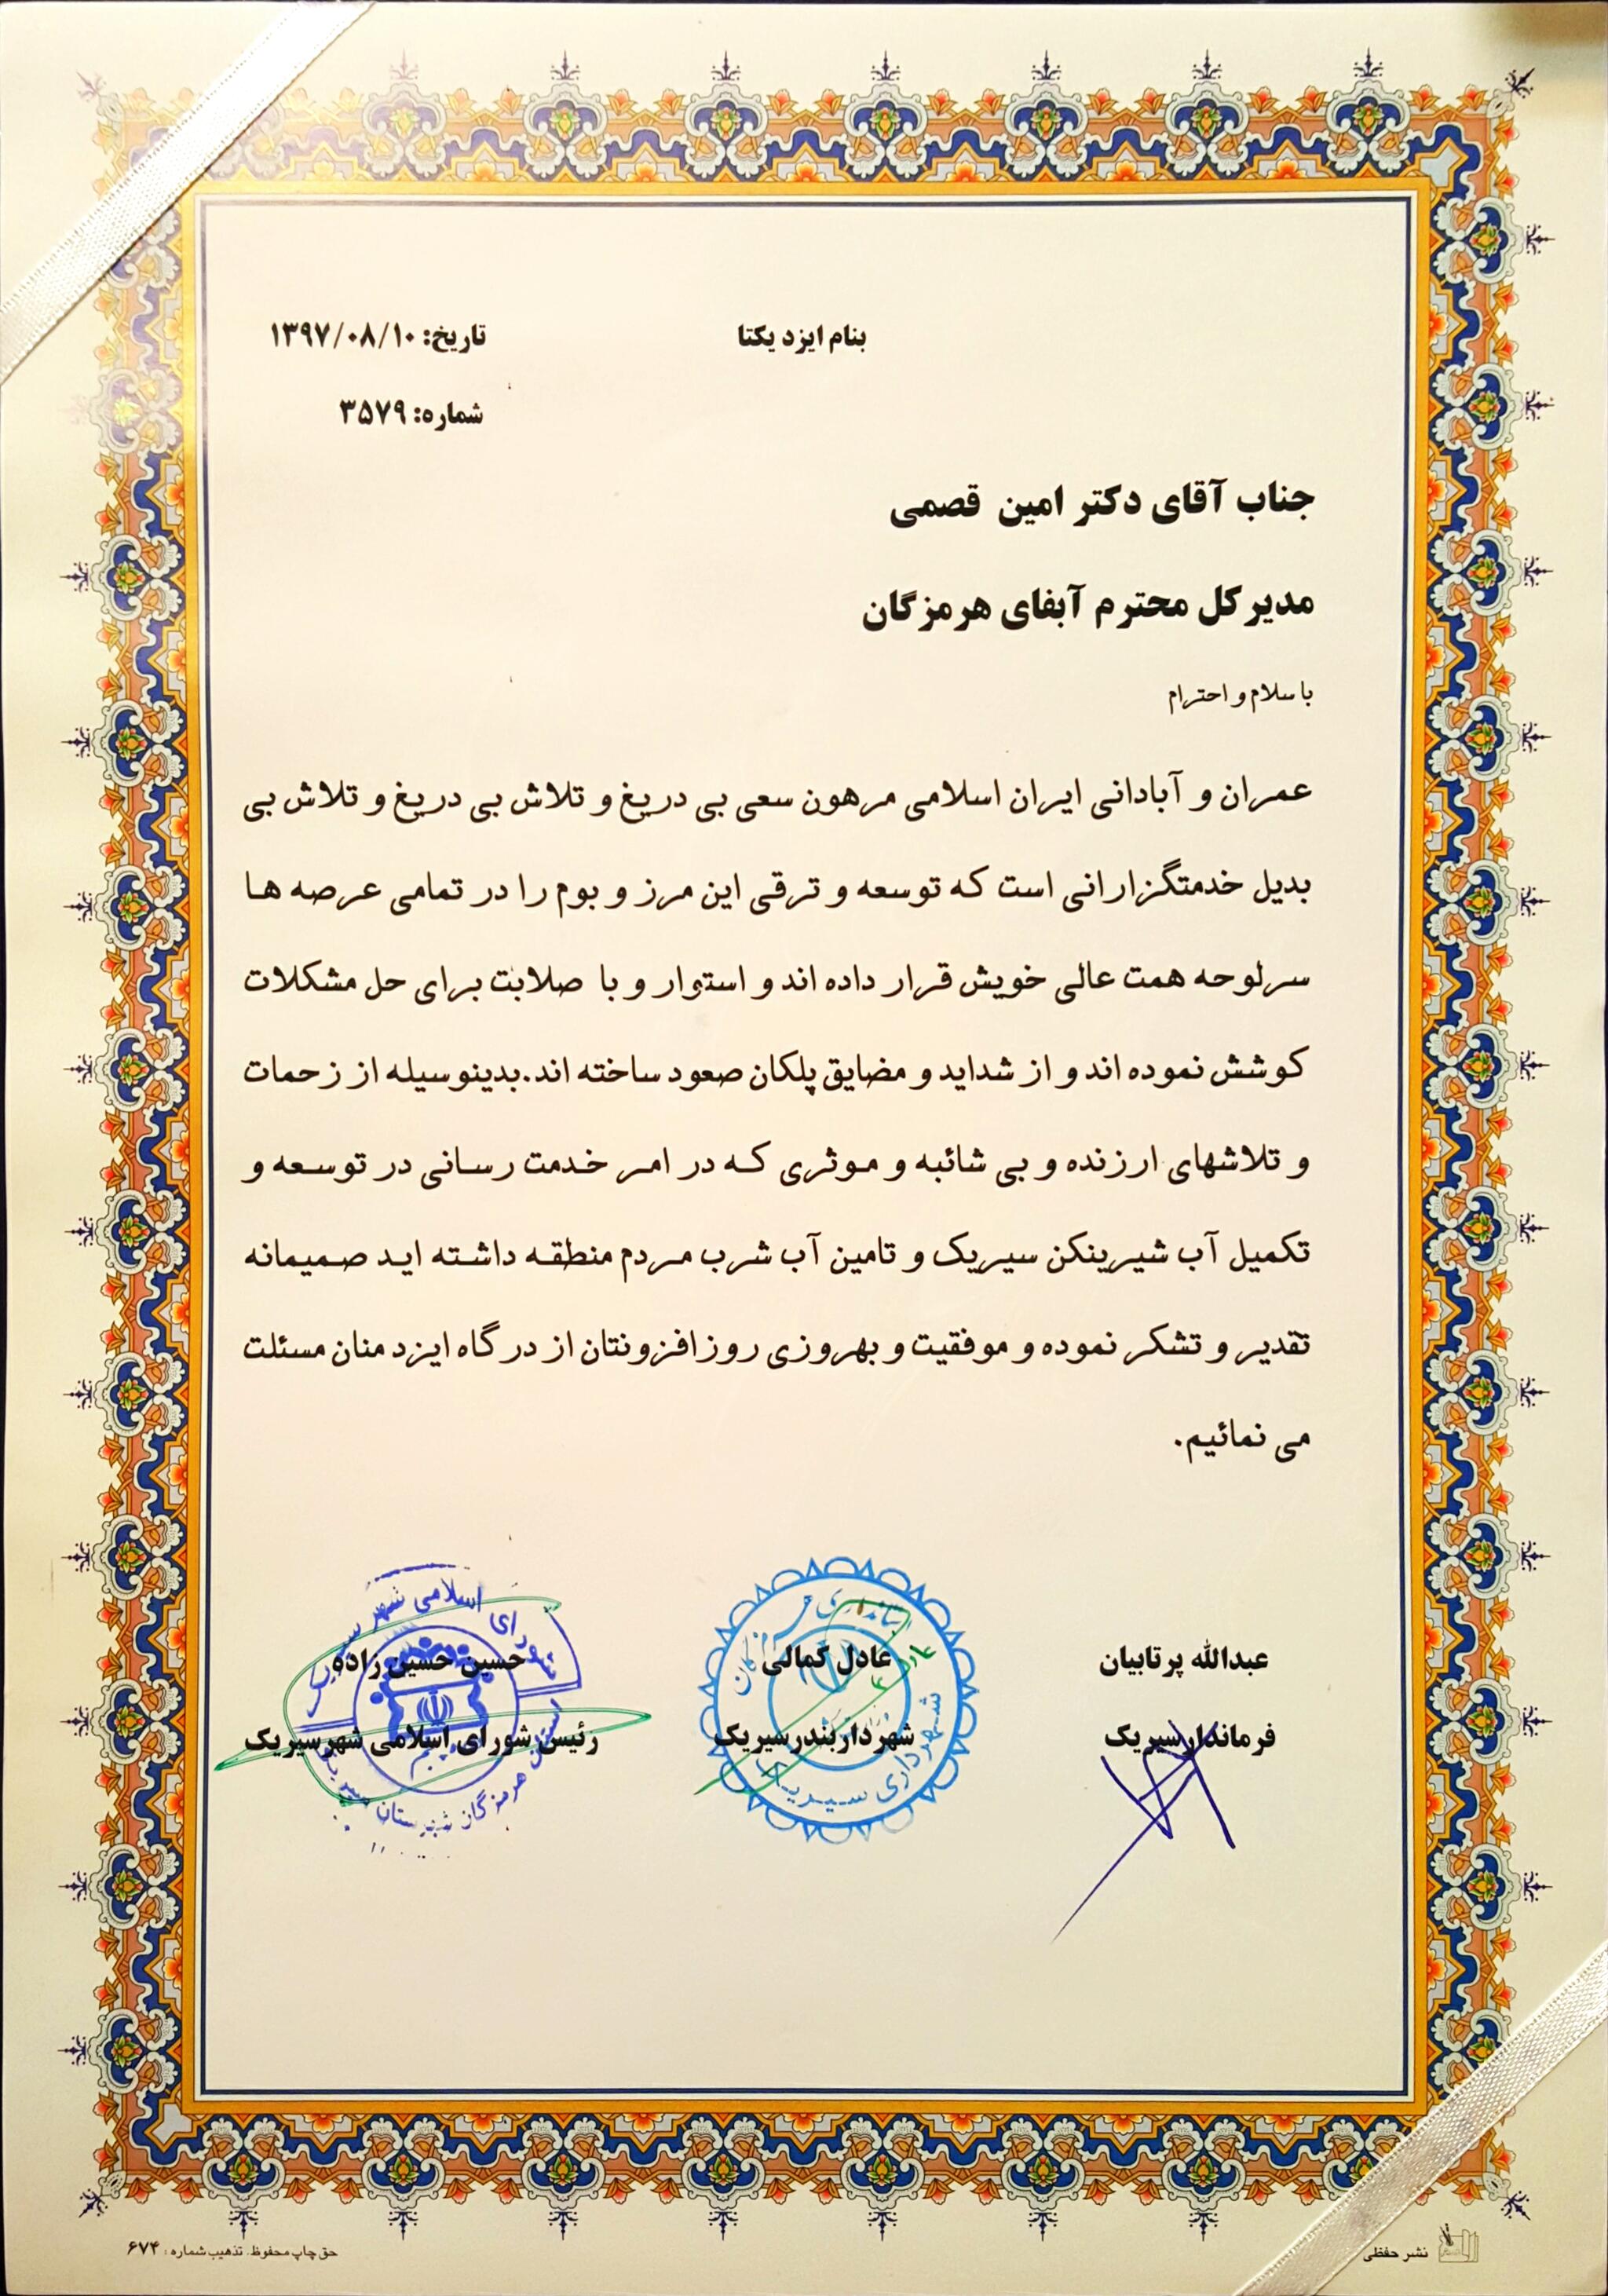 بنام ایزد یکتا
تاریخ: ۱۳۹۷/۰۸/۱۰
شماره: ۳۵۷۹
جناب آقای دکتر امین قصمی
مدیرکل محترم آبفای هرمزگان
با سلام و احترام
عمران و آبادانی ایران اسلامی مرهون سعی بی دریغ و تلاش بی دریغ و تلاش بی
بدیل خدمتگزارانی است که توسعه و ترقی این مرز و بوم را در تمامی عرصه ها
سرلوحه همت عالی خویش قرار داده اند و استوار و با صلابت برای حل مشکلات
کوشش نموده اند و از شداید و مضایق پلکان صعود ساخته اند.بدینوسیله از زحمات
و تلاشهای ارزنده و بی شائبه و موثری که در امر خدمت رسانی در توسعه و
تکمیل آب شیرینکن سیریک و تامین آب شرب مردم منطقه داشته اید صمیمانه
تقدیر و تشکر نموده و موفقیت و بهروزی روزافزونتان از درگاه ایزد منان مسئلت
می نمائیم.
عبدالله پرتابیان
فرماندار سیریک
عادل کمالی
شهردار بندر سیریک
استانداری هرمزگان
شهرداری سیریک
حسین حسین زاده
رئیس شورای اسلامی شهر سیریک
شورای اسلامی شهر سیریک
استان هرمزگان شهرستان سیریک
نشر حفظی
حق چاپ محفوظ. تذهیب شماره: ۶۷۴